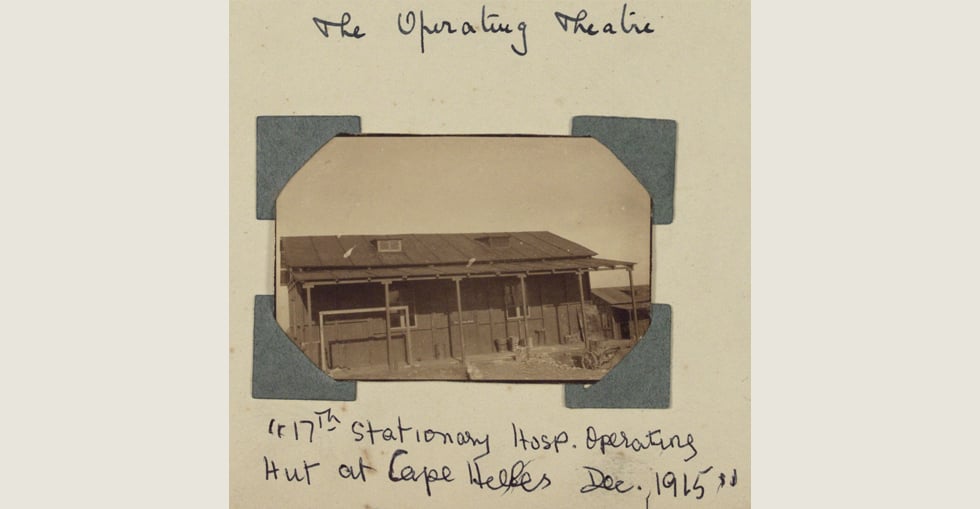 The Operating Theatre
"17Th Stationary Hosp. Operating
Hut at Cape Helles Dec. 1915"